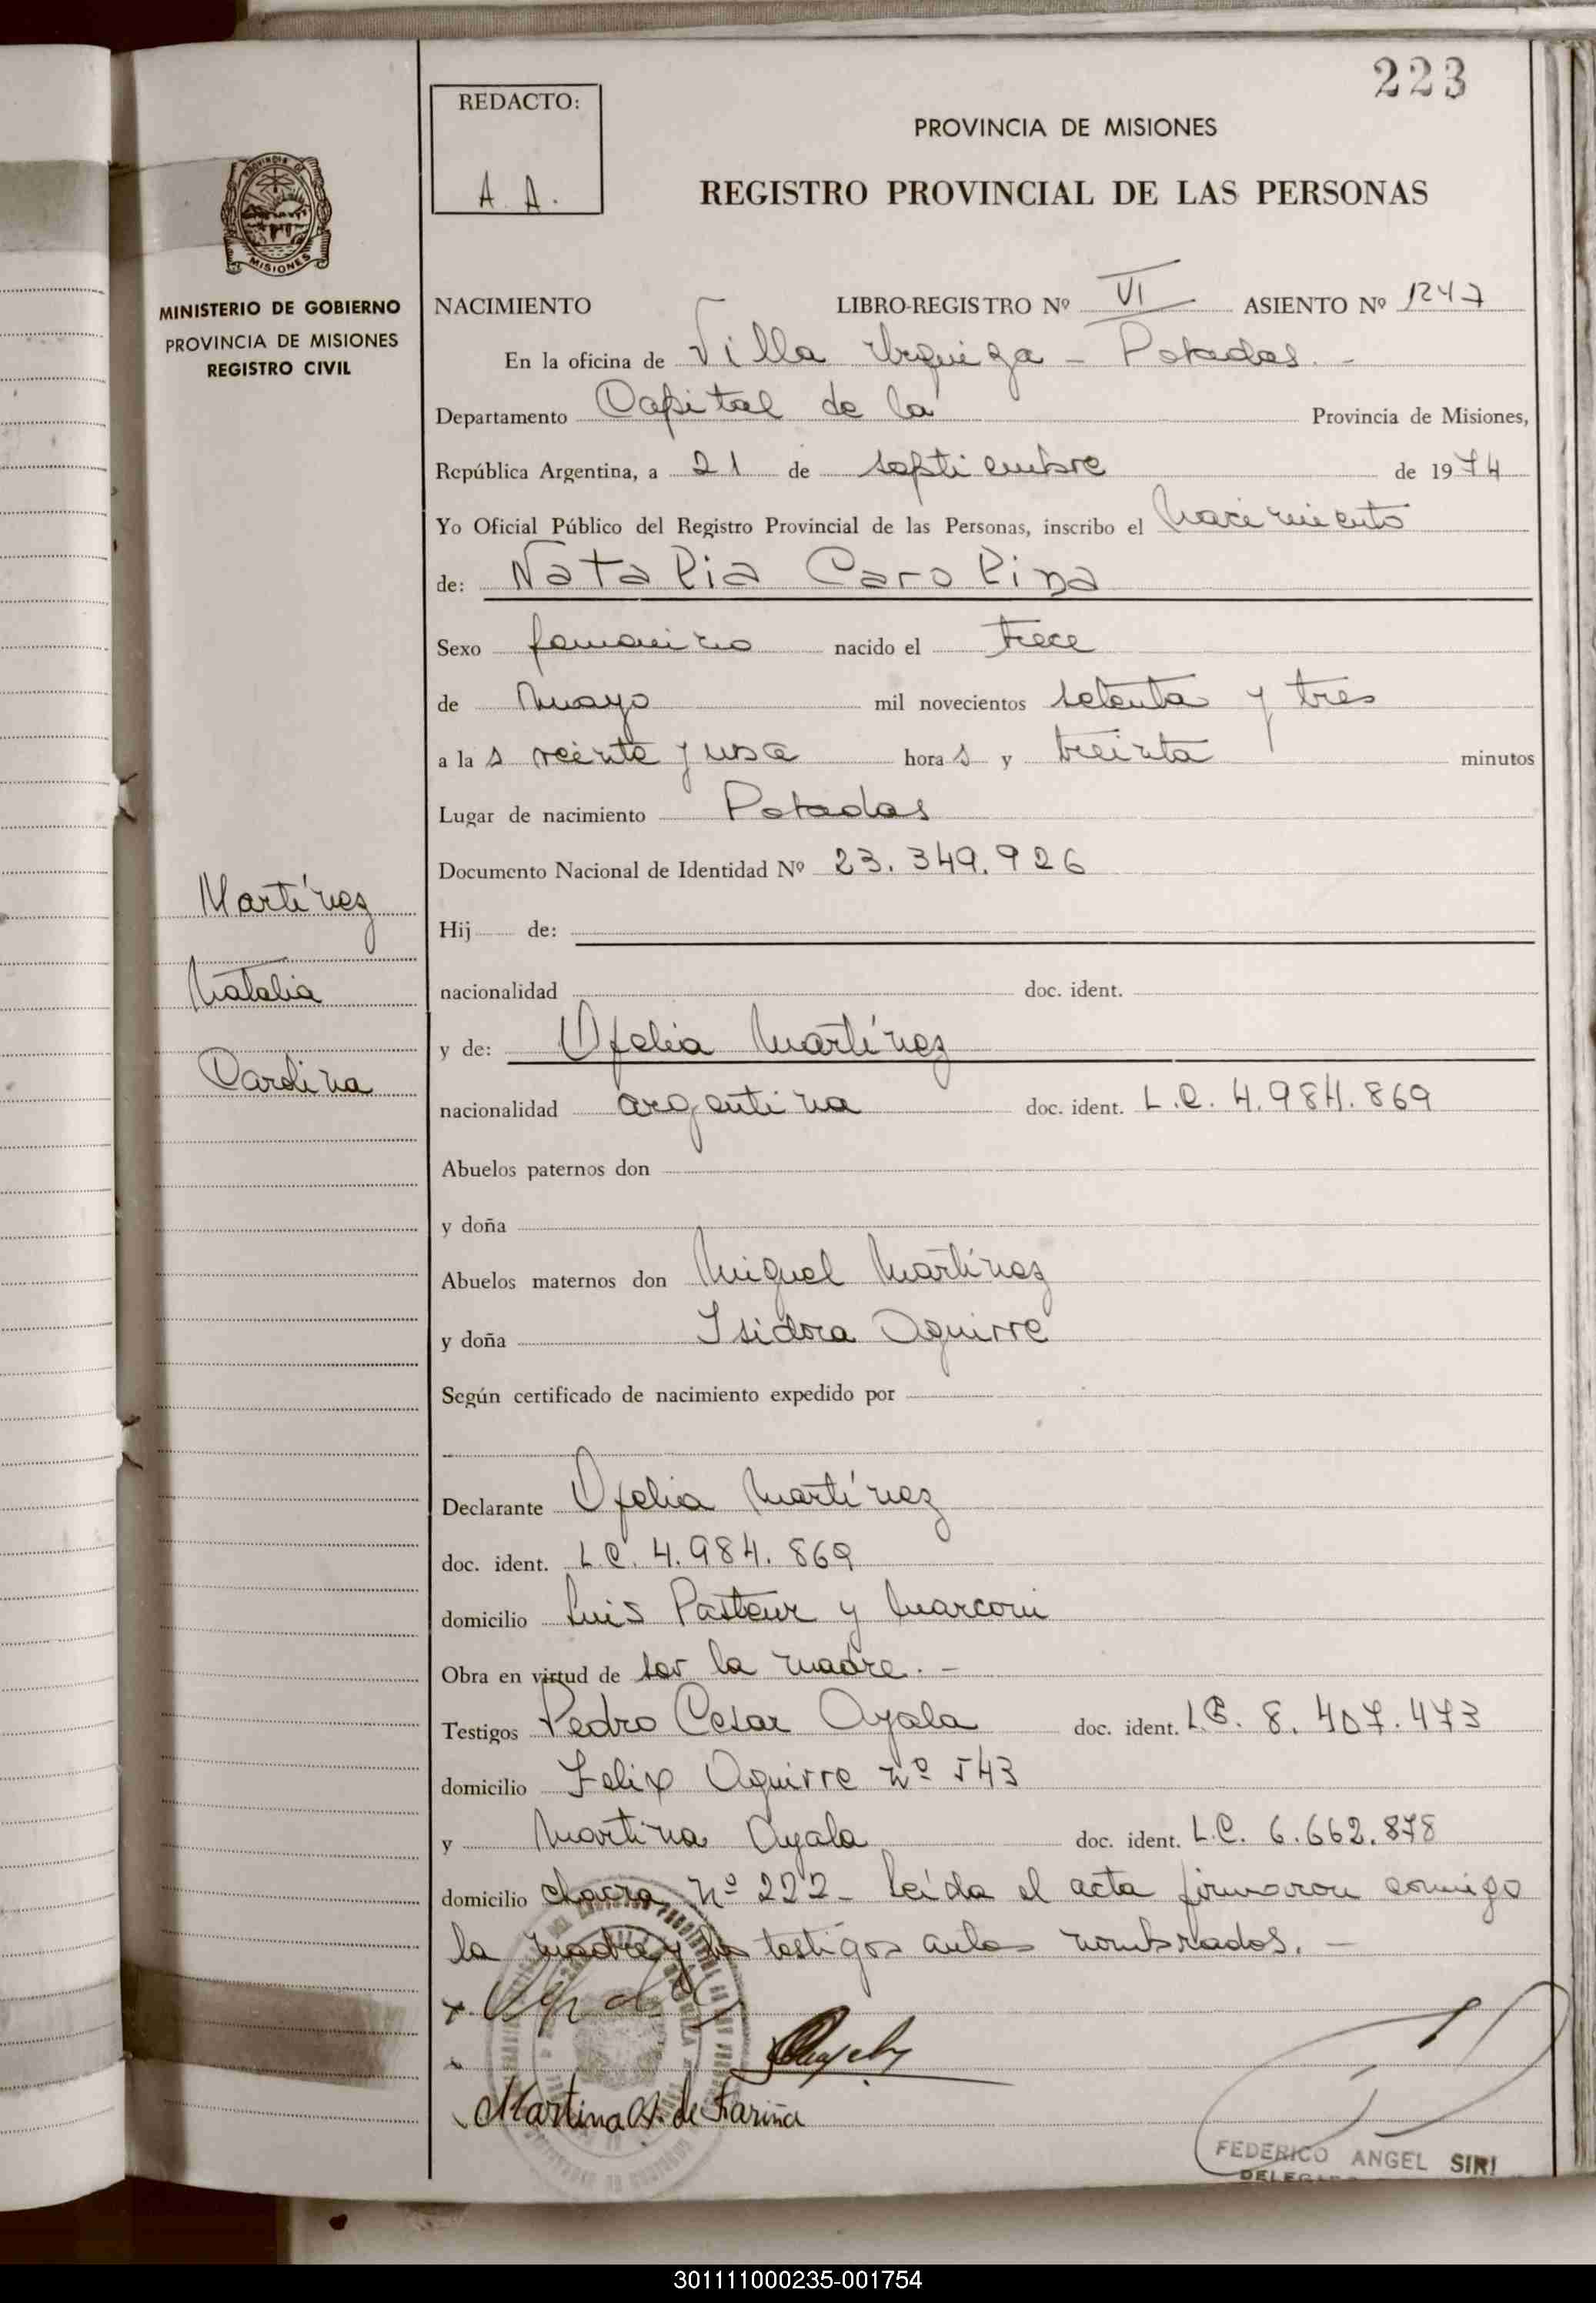 223
REDACTO:
A. A.
PROVINCIA DE MISIONES
REGISTRO PROVINCIAL DE LAS PERSONAS
PROVINCIA
MISIONES
MINISTERIO DE GOBIERNO
PROVINCIA DE MISIONES
REGISTRO CIVIL
NACIMIENTO LIBRO-REGISTRO Nº VI ASIENTO Nº 1247
En la oficina de Villa Urquiza - Posadas. -
Departamento Capital de la Provincia de Misiones,
República Argentina, a 21 de septiembre de 1974
Yo Oficial Público del Registro Provincial de las Personas, inscribo el nacimiento
de: Natalia Carolina
Sexo femenino nacido el trece
de mayo mil novecientos setenta y tres
a la s veinte y una hora s y treinta minutos
Lugar de nacimiento Posadas
Documento Nacional de Identidad Nº 23.349.926
Martínez
Natalia
Carolina
Hij de:
nacionalidad doc. ident.
y de: Ofelia Martínez
nacionalidad argentina doc. ident. L.C. 4.984.869
Abuelos paternos don
y doña
Abuelos maternos don Miguel Martínez
y doña Isidora Aguirre
Según certificado de nacimiento expedido por
Declarante Ofelia Martínez
doc. ident. L.C. 4.984.869
domicilio Luis Pasteur y Marconi
Obra en virtud de ser la madre. -
Testigos Pedro Cesar Ayala doc. ident. L.E. 8.407.473
domicilio Felix Aguirre Nº 543
y Martina Ayala doc. ident. L.C. 6.662.878
domicilio chacra Nº 222 - Leída el acta firmaron conmigo
la madre y los testigos antes nombrados. -
Martina A. de Fariña
FEDERICO ANGEL SIRI
301111000235-001754